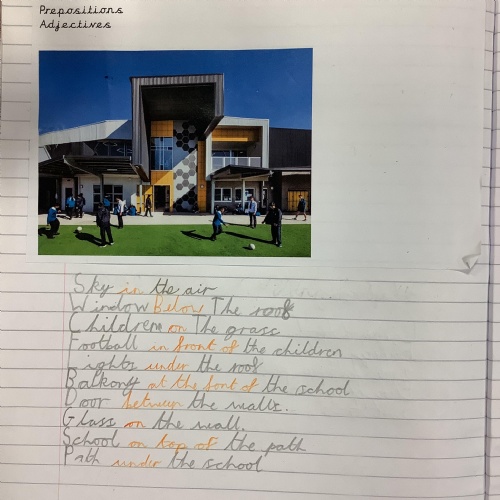 Prepositions
Adjectives
Sky in the air
Window Below The roof
Children on The grass
Football in front of the children
Lights under the roof
Balkony at the font of the school
Door between the walls.
Glass on the wall.
School on top of the path
Path under the school